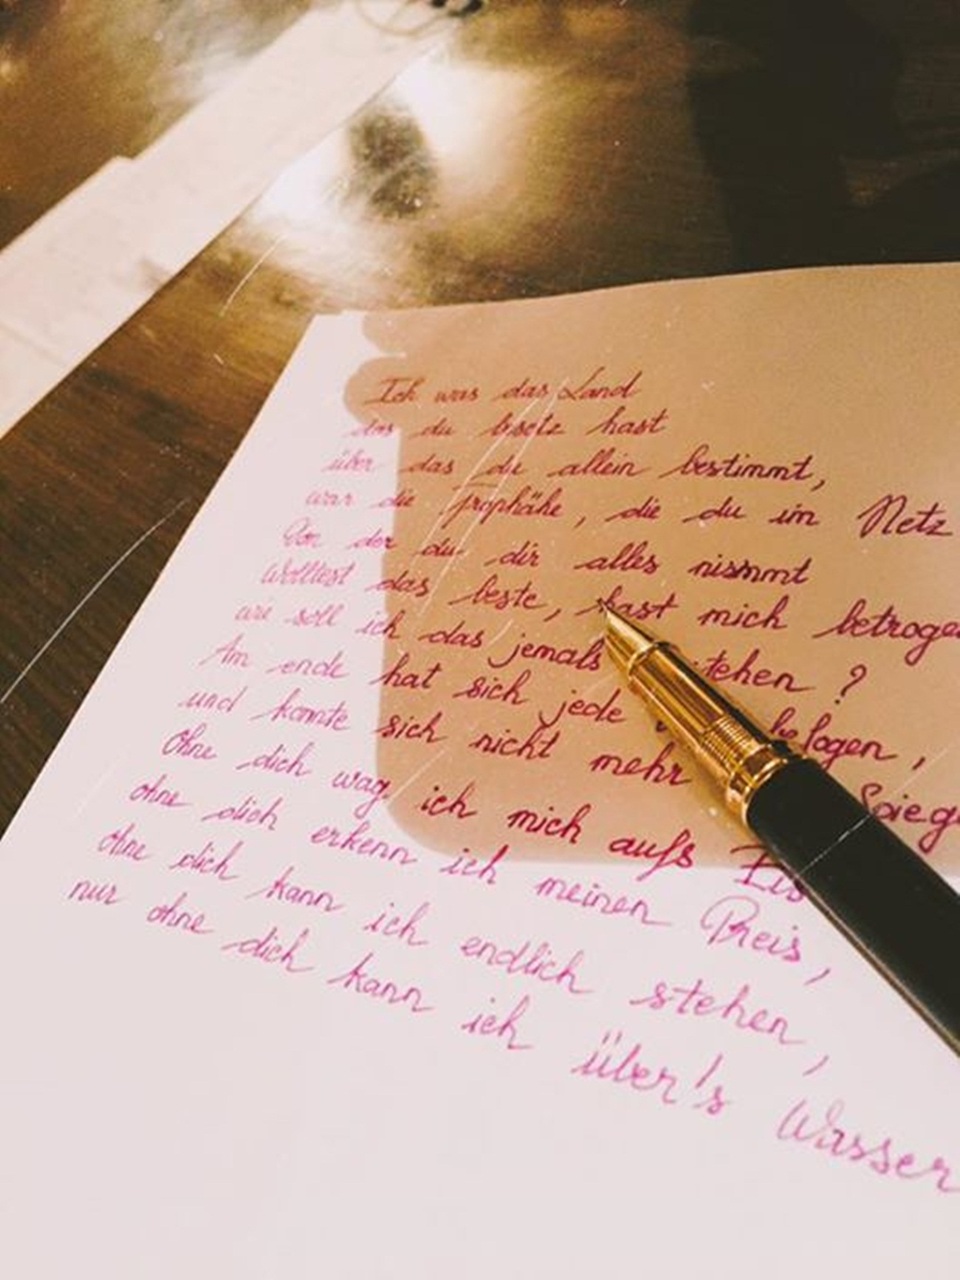 Ich was das Land
das du besetz hast
über das du allein bestimmt,
war die Trophähe, die du im Netz
Von der du dir alles nismmt
Wolltest das beste, hast mich
wie soll ich das jemals ?
Am ende hat sich jede belogen,
und konnte sich nicht mehr
Ohne dich wag ich mich aufs Eis
ohne dich erkenn ich meinen Preis,
ohne dich kann ich endlich stehen,
nur ohne dich kann ich über's Wasser